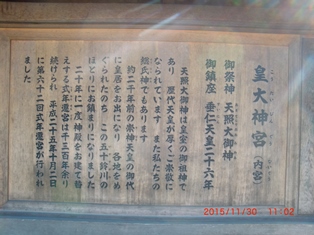 皇大神宮(内宮)
こう たい じん ぐう
御祭神 天照大御神
御鎮座 垂仁天皇二十六年
天照大御神は皇室の御祖神で
あり 歴代天皇が厚くご崇敬に
なられています また私たちの
総氏神でもあります
約二千年前の崇神天皇の御代
に皇居をお出になり 各地をめ
ぐられたのち この五十鈴川の
ほとりにお鎮まりになりました
二十年に一度神殿をお建て替
えする式年遷宮は千三百年余り
続けられ 平成二十五年十月二日
に第六十二回式年遷宮が行われ
ました
2015/11/30 11:02